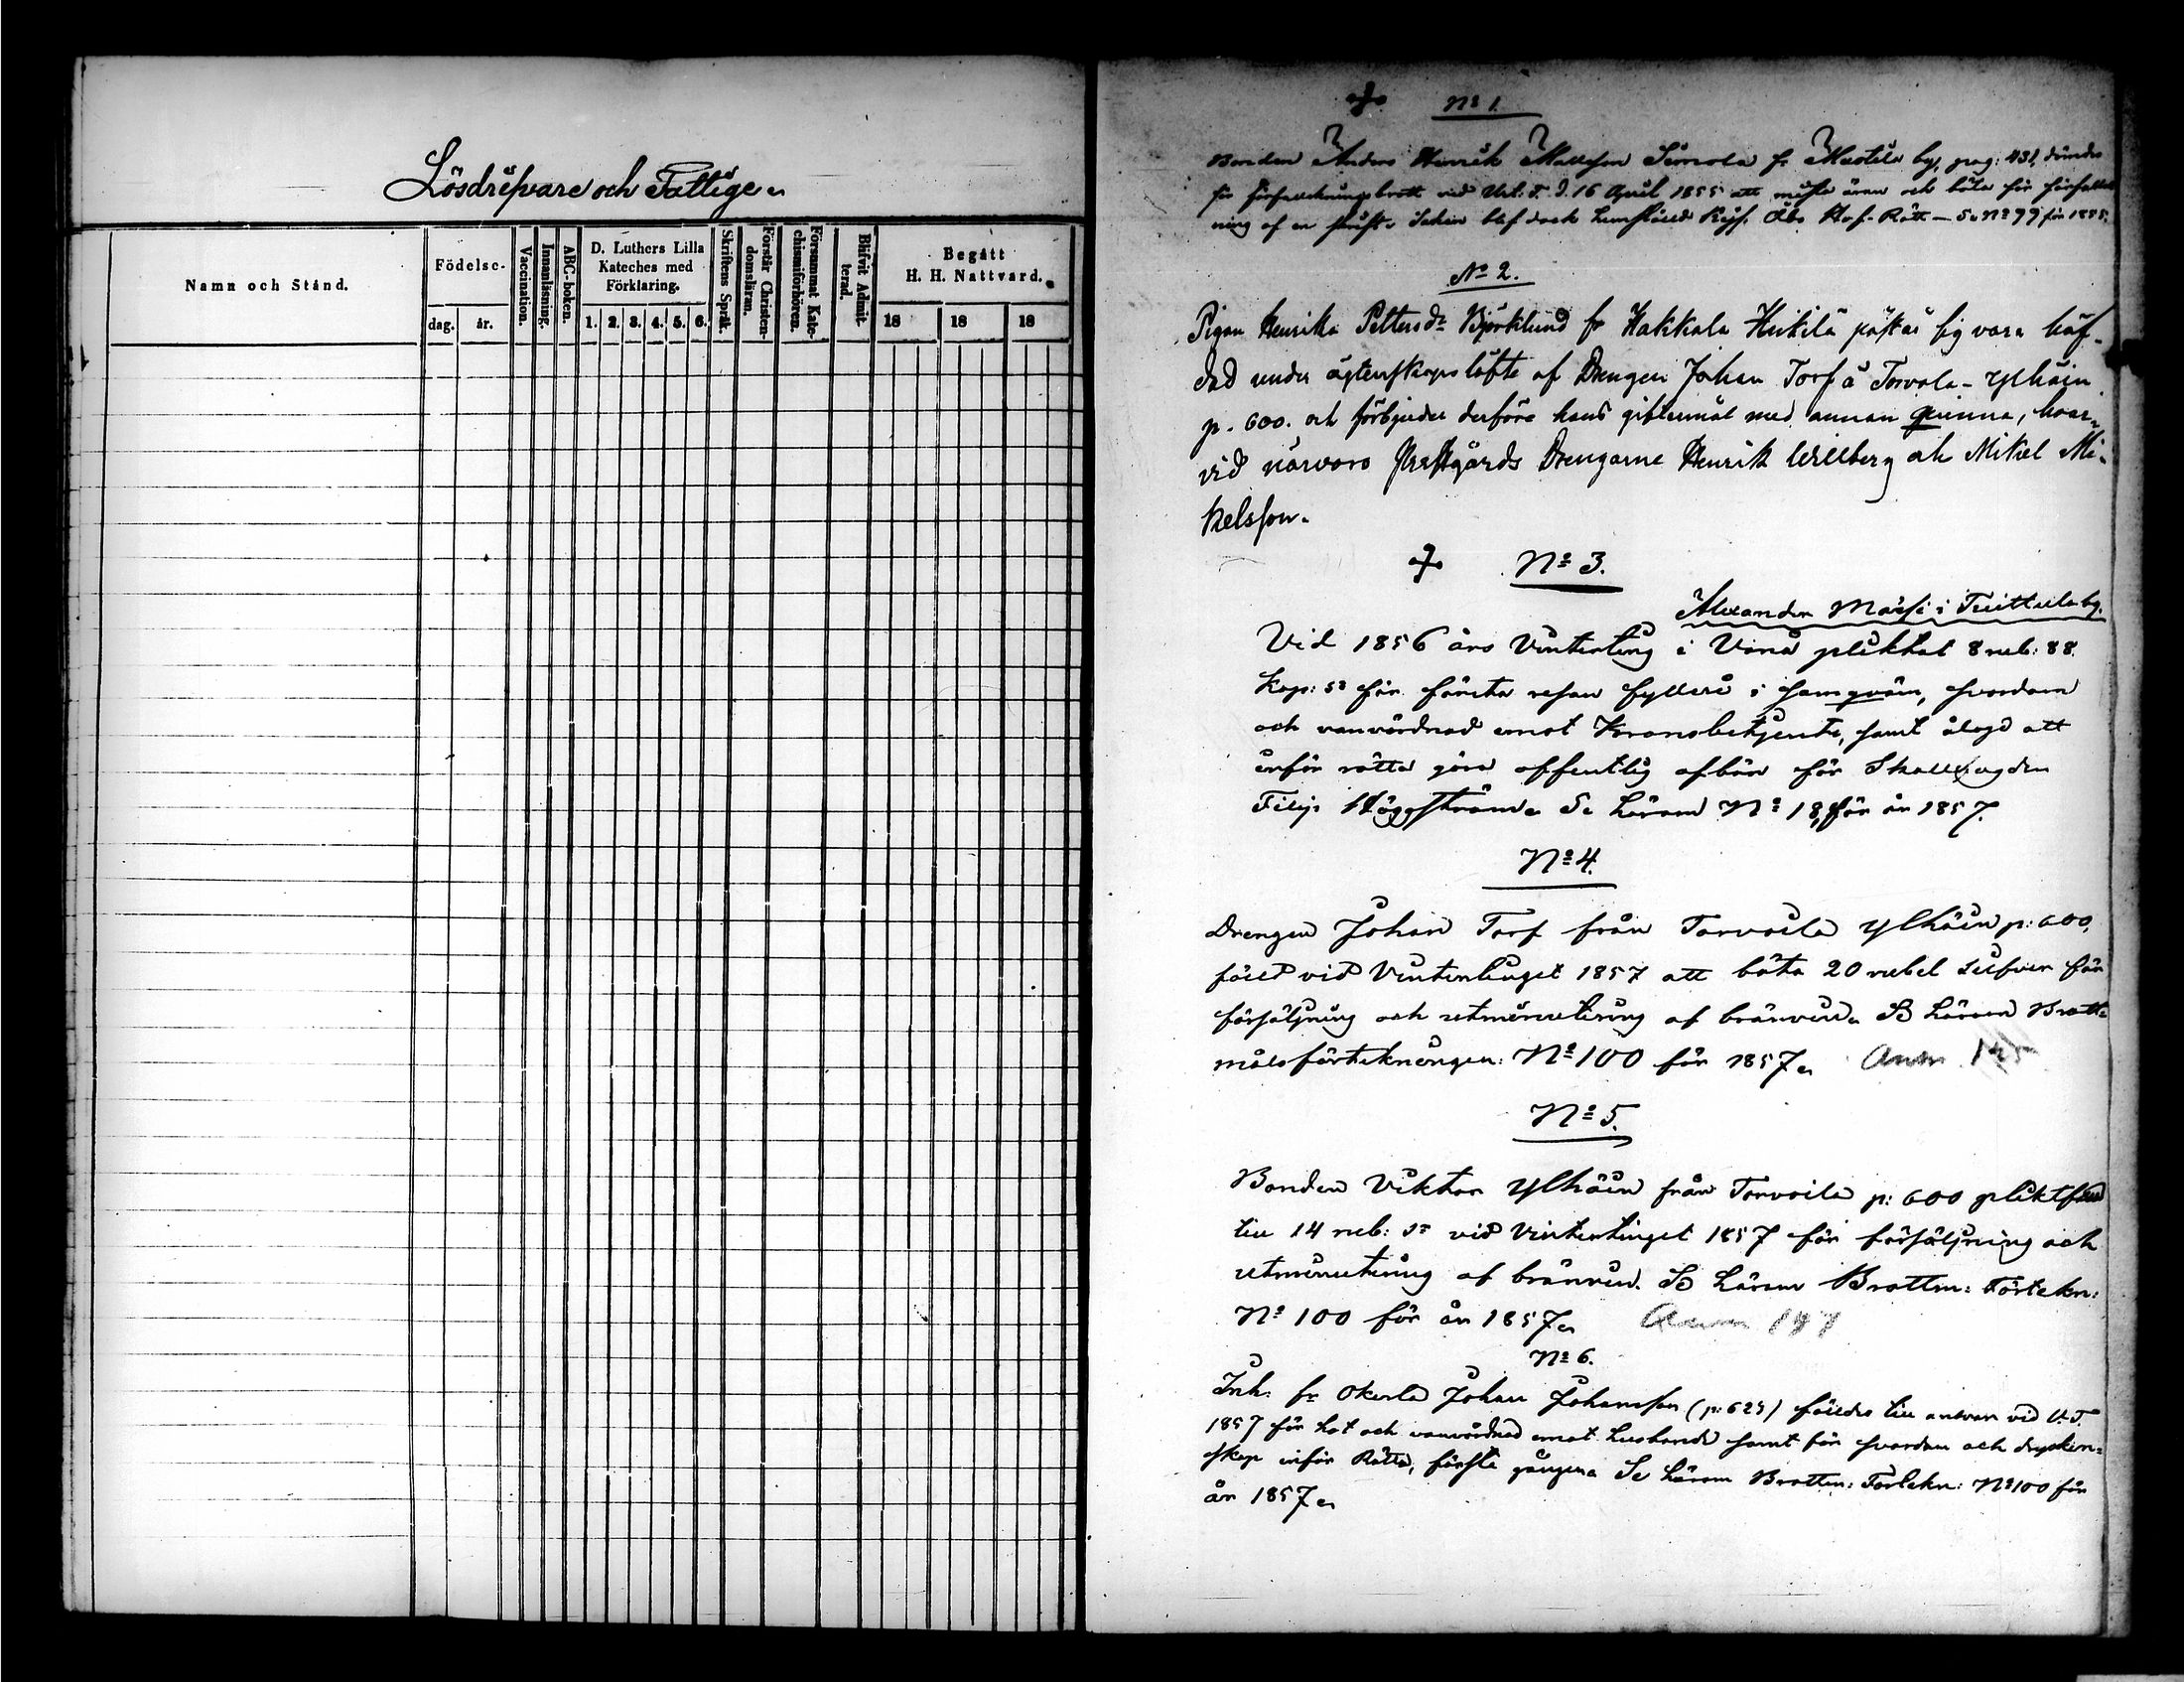 Lösdrifvare och Fattige.
Namn och Stånd.
Födelse-
dag. år.
Vaccination.
Innanläsning.
ABC-boken.
D. Luthers Lilla
Kateches med
Förklaring.
1. 2. 3. 4. 5. 6.
Skriftens Språk.
Förstår Christen-
domsläran.
Försummat Kate-
chismiförhören.
Blifvit Admit-
terad.
Begått
H. H. Nattvard.
18 18 18
No 1.
Bonden Anders Henrik Mattsson Simola fr by, pag: 431, dömdes
för brott vid Urt. T. d. 16 April 1855 att mista äran och böta för förfalsk
ning af en skrift. Saken blef dock Kejs. Åbo Hof-Rätt — Se No 99 för 1855.
No 2.
Pigan Henrika Pettersdr Björklund fr Hakkala Heikilä påstår sig vara häf-
dad under ägtenskapslöfte af Drengen Johan Torf å Torvola - Ylhäin
p. 600. och förbjuder derföre hans giftermål med annan qvinna, hvar-
vid närvoro Prestgårds Drengarne Henrik Willberg och Mikel Mi-
kelsson.
No 3.
Alexander i Tuittula by.
Vid 1856 års Vinterting i Vånå pliktat 8 rub: 88.
Kop: Sr för första resan fylleri i samqväm, svordom
och vanvördnad emot Kronobetjente, samt ålagd att
inför rätta göra offentlig afbön för Skallfogden
Filip Häggström. Se Läram No 18, för år 1857.
No 4.
Drengen Johan Torf från Torvoila Ylhäin p: 600,
fäld vid Vintertinget 1857 att böta 20 rubel Silfver för
försäljning och utminutering af bränvin. Se Läram Brott-
målsförtekningen: No 100 för 1857.
No 5.
Bonden Viktor Ylhäin från Torvoila p: 600 pliktfäld
till 14 rub: Sr vid Vintertinget 1857 för försäljning och
utminutering af bränvin. Se Läram Brottm: Förtekn:
No 100 för år 1857.
No 6.
Inh: fr Okerla Johan Johansson (p: 625) fäldes till ansvar vid V.T.
1857 för hot och vanvördnad emot husbonde samt för svordom och drycken-
skap inför Rätta, första gången. Se Läram Brottm: Förtekn: No 100 för
år 1857.